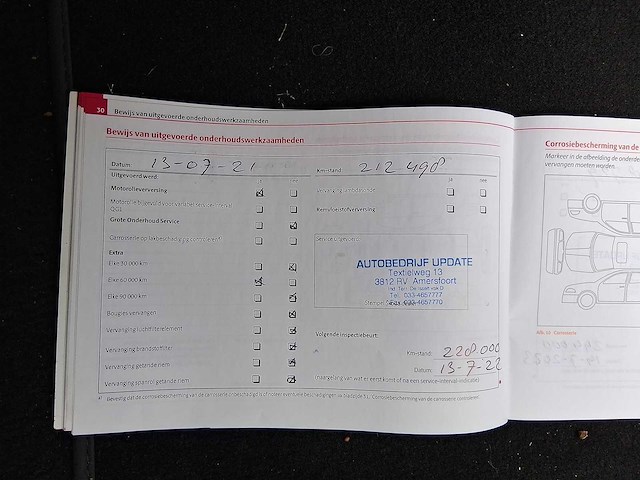 30 Bewijs van uitgevoerde onderhoudswerkzaamheden
Bewijs van uitgevoerde onderhoudswerkzaamheden
Datum: 13-07-21 Km-stand: 212 498
Uitgevoerd werd:
ja nee
Motorolieverversing
Remvloeistofverversing
Grote Onderhoud Service
Service uitgevoerd:
Extra
Elke 30 000 km
Elke 60 000 km
Elke 90 000 km
Bougies vervangen
Vervanging luchtfilterelement
Vervanging brandstoffilter
Vervanging getande riem
Vervanging spanrol getande riem
AUTOBEDRIJF UPDATE
Textielweg 13
3812 RV Amersfoort
Tel: 033-4657777
Fax: 033-4657770
Volgende inspectiebeurt:
Km-stand: 2208.000
Datum: 13-7-22
(naargelang van wat er eerst komt of na een service-interval-indicatie)
Corrosiebescherming van de
Markeer in de afbeelding de onderde
vervangen moeten worden.